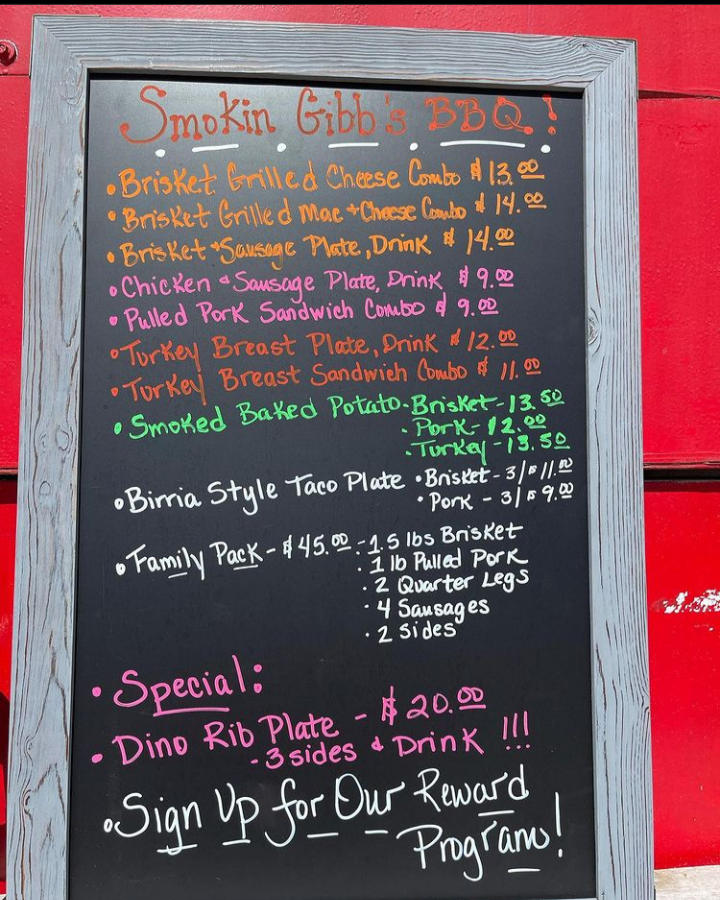 Smokin Gibb's BBQ!
• Brisket Grilled Cheese Combo $13.00
• Brisket Grilled Mac + Cheese Combo $14.00
• Brisket + Sausage Plate, Drink $14.00
• Chicken & Sausage Plate, Drink $9.00
• Pulled Pork Sandwich Combo $9.00
• Turkey Breast Plate, Drink $12.00
• Turkey Breast Sandwich Combo $11.00
• Smoked Baked Potato • Brisket - 13.50
• Pork - 12.00
• Turkey - 13.50
• Birria Style Taco Plate • Brisket - 3/$11.00
• Pork - 3/$9.00
• Family Pack - $45.00 - 1.5 lbs Brisket
• 1 lb Pulled Pork
• 2 Quarter Legs
• 4 Sausages
• 2 Sides
• Special:
• Dino Rib Plate - $20.00
- 3 sides & Drink !!!
• Sign Up for Our Reward
Program!